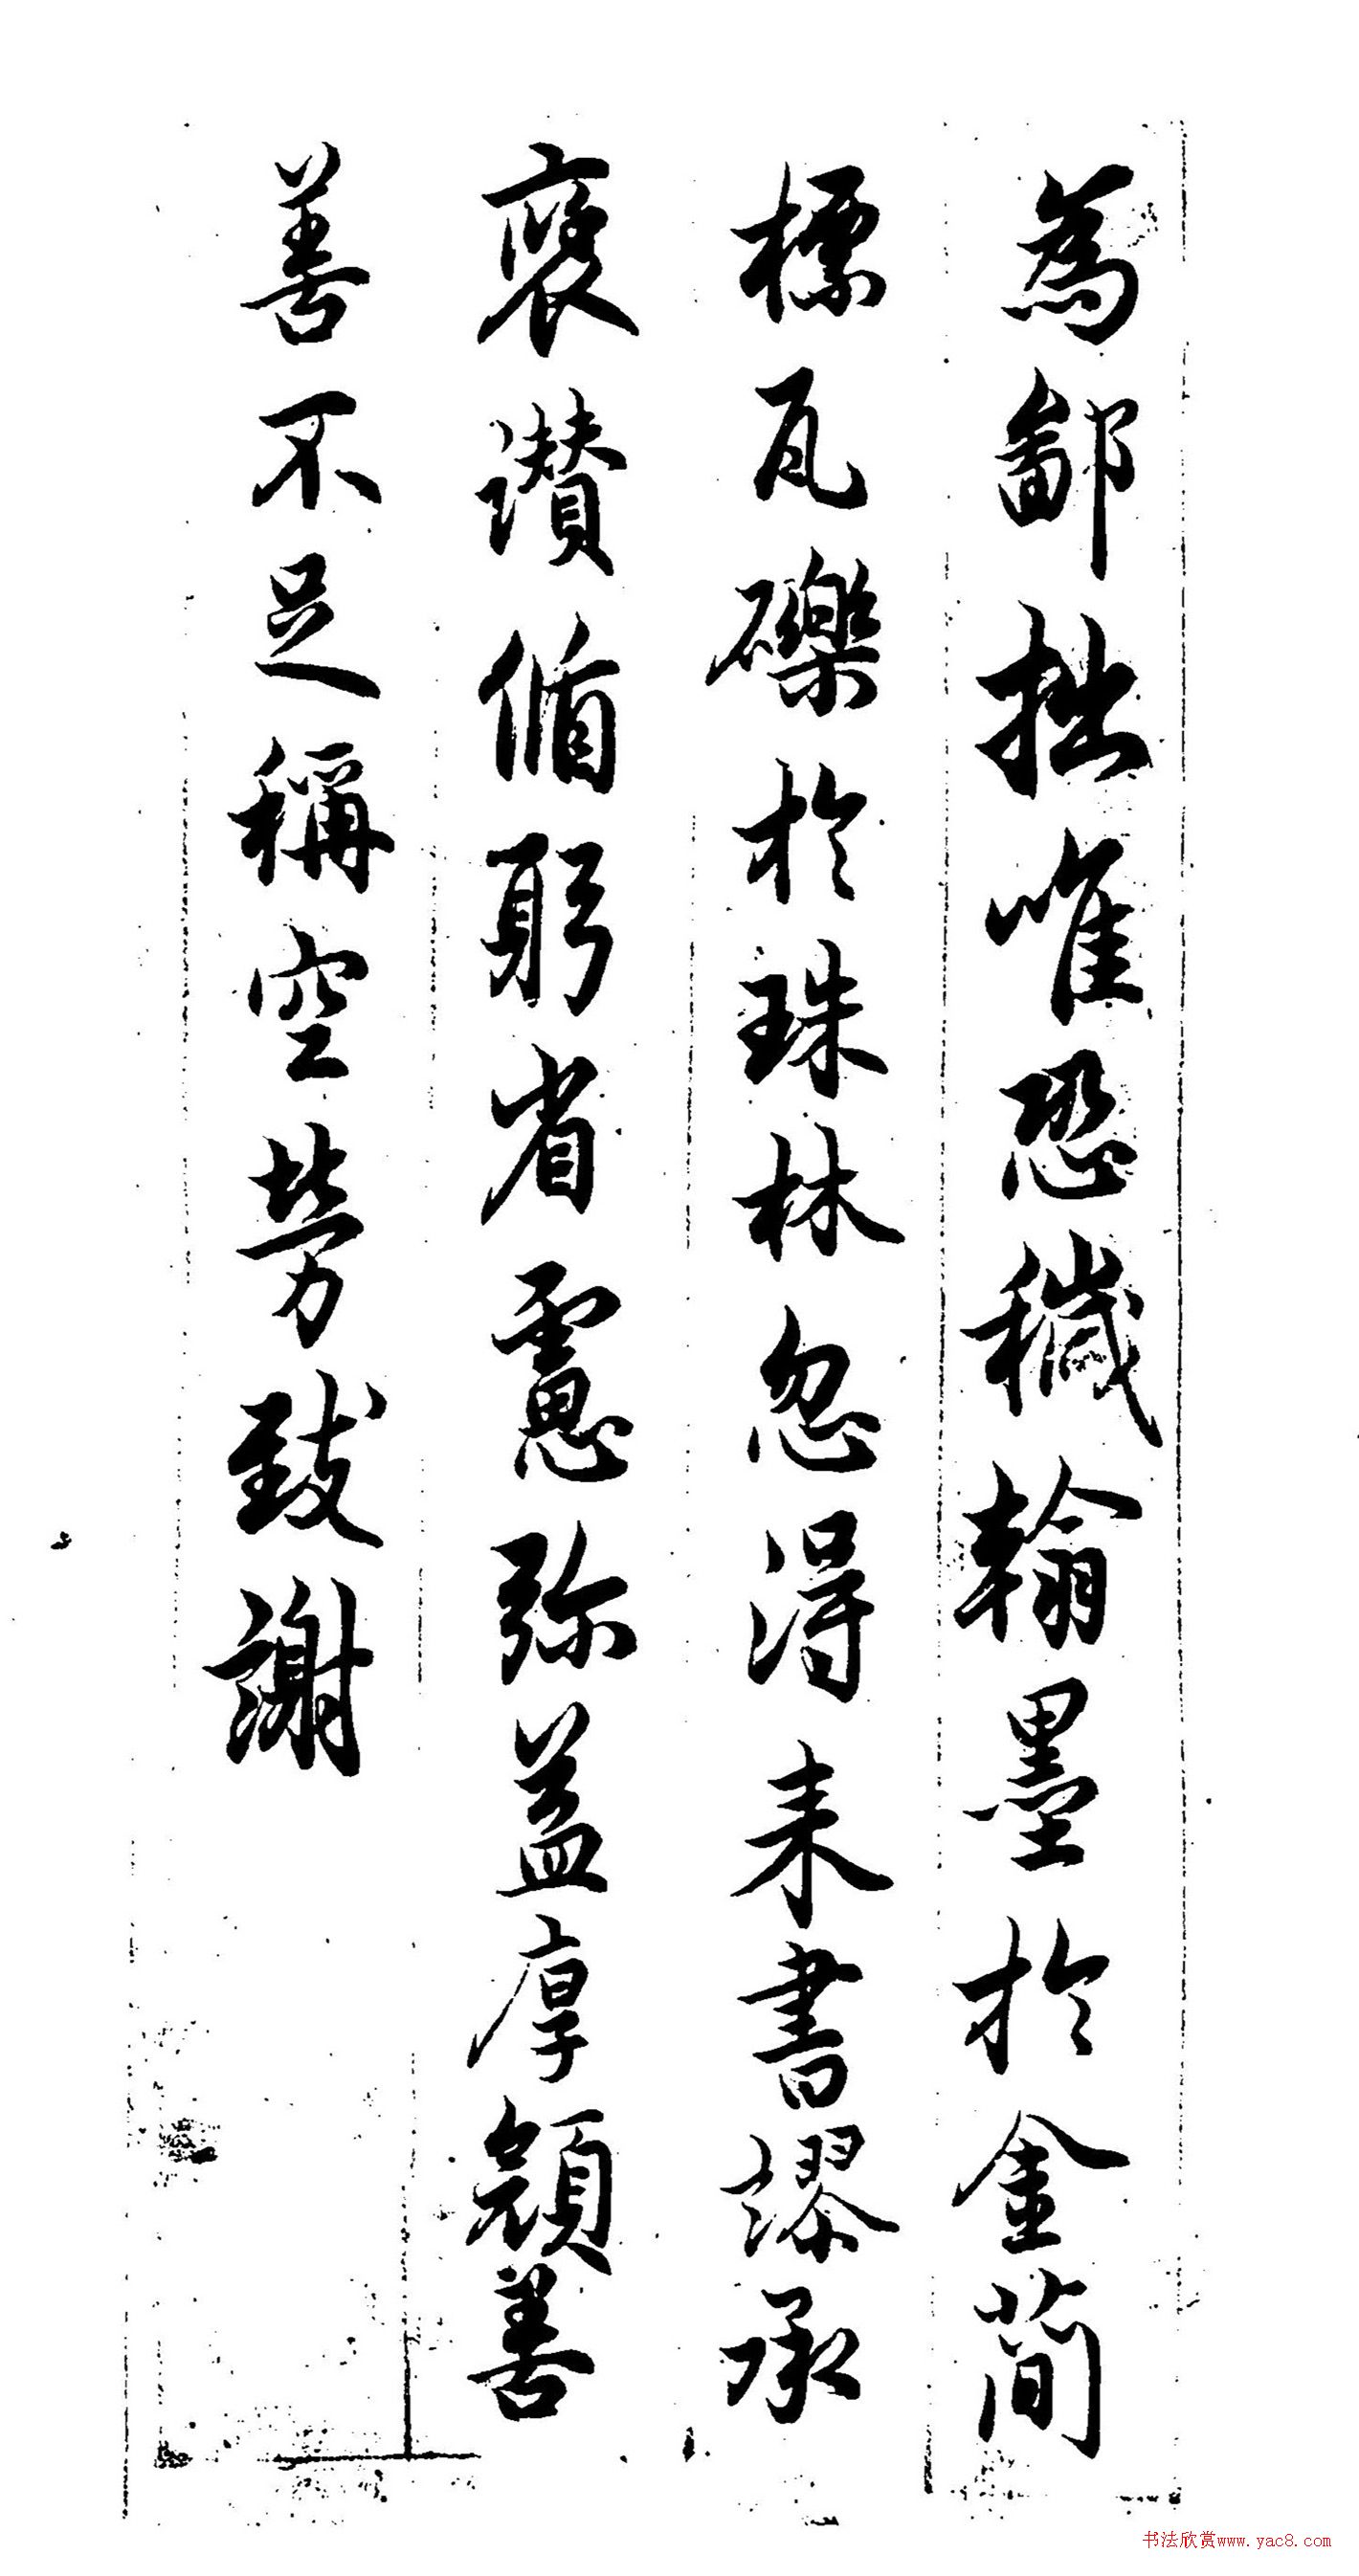 為鄙拙唯恐穢翰墨於金簡
標瓦礫於珠林忽得来書謬承
褒讃循躬省慮弥益厚顔善
善不足稱空勞致謝
书法欣赏www.yac8.com